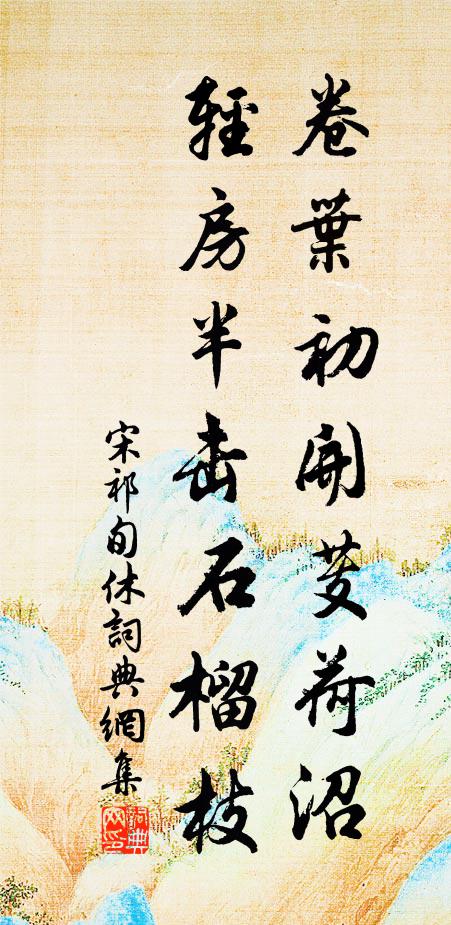 卷葉初開芰荷沼
輕房半出石榴枝
宋祁旬休詞典網集
詞典網印